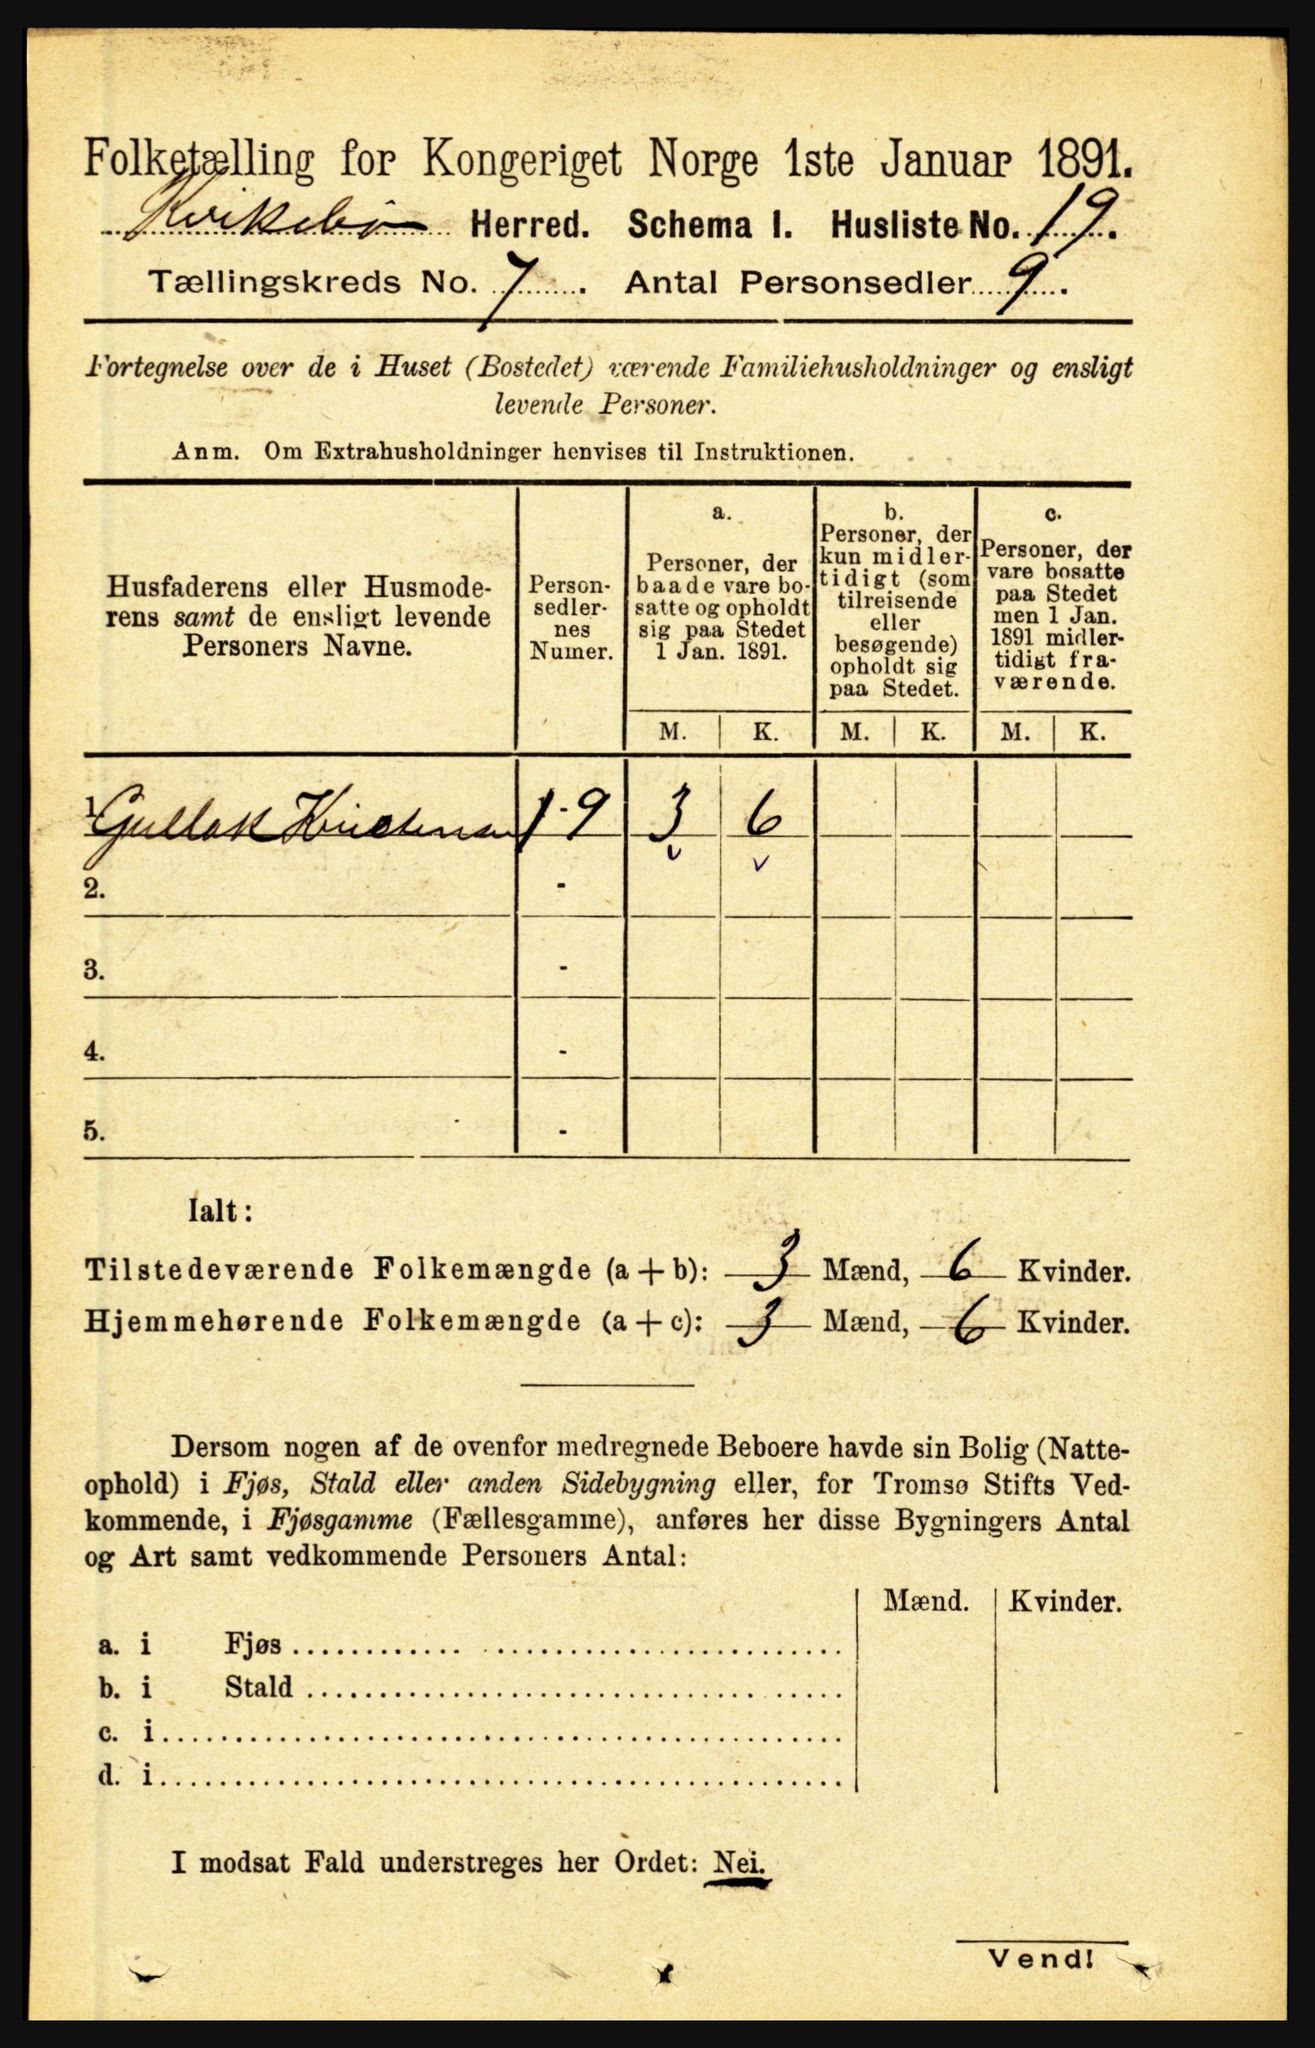 Folketælling for Kongeriget Norge 1ste Januar 1891.
Kvikebø Herred. Schema I. Husliste No. 19.
Tællingskreds No. 7. Antal Personsedler 9.
Fortegnelse over de i Huset (Bostedet) værende Familiehusholdninger og ensligt
levende Personer.
Anm. Om Extrahusholdninger henvises til Instruktionen.
Husfaderens eller Husmode-
rens samt de ensligt levende
Personers Navne.
Person-
sedler-
nes
Numer.
a.
Personer, der
baade vare bo-
satte og opholdt
sig paa Stedet
1 Jan. 1891.
b.
Personer, der
kun midler-
tidigt (som
tilreisende
eller
besøgende)
opholdt sig
paa Stedet.
c.
Personer, der
vare bosatte
paa Stedet
men 1 Jan.
1891 midler-
tidigt fra-
værende.
M. K. M. K. M. K.
1. Gullak 1 - 9 3 6
2. -
3. -
4. -
5. -
Ialt:
Tilstedeværende Folkemængde (a + b): 3 Mænd, 6 Kvinder.
Hjemmehørende Folkemængde (a + c): 3 Mænd, 6 Kvinder.
Dersom nogen af de ovenfor medregnede Beboere havde sin Bolig (Natte-
ophold) i Fjøs, Stald eller anden Sidebygning eller, for Tromsø Stifts Ved-
kommende, i Fjøsgamme (Fællesgamme), anføres her disse Bygningers Antal
og Art samt vedkommende Personers Antal:
Mænd. Kvinder.
a. i Fjøs
b. i Stald
c. i
d. i
I modsat Fald understreges her Ordet: Nei.
Vend!